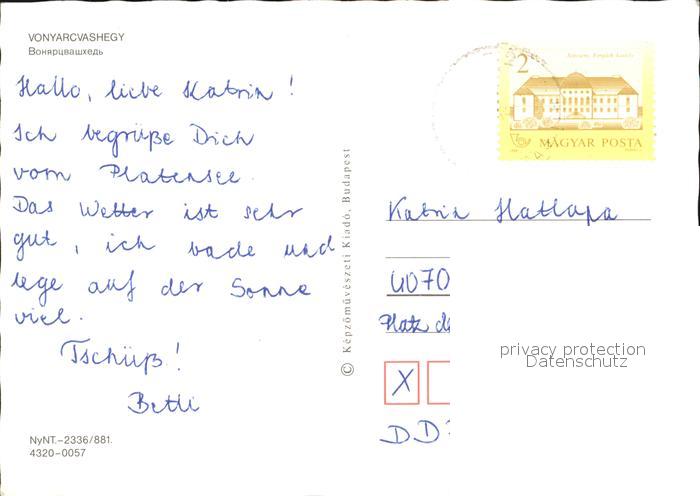 VONYARCVASHEGY
Вонярцвашхедь
Hallo, liebe Katrin!
Ich begrüße Dich
vom Platensee.
Das Wetter ist sehr
gut, ich bade und
lege auf der Sonne
viel.
Tschüß!
Betti
NyNT.–2336/881.
4320–0057
© Képzőművészeti Kiadó, Budapest
2
MAGYAR POSTA
Katrin Hatlapa
4070
Platz
X
DD
privacy protection
Datenschutz